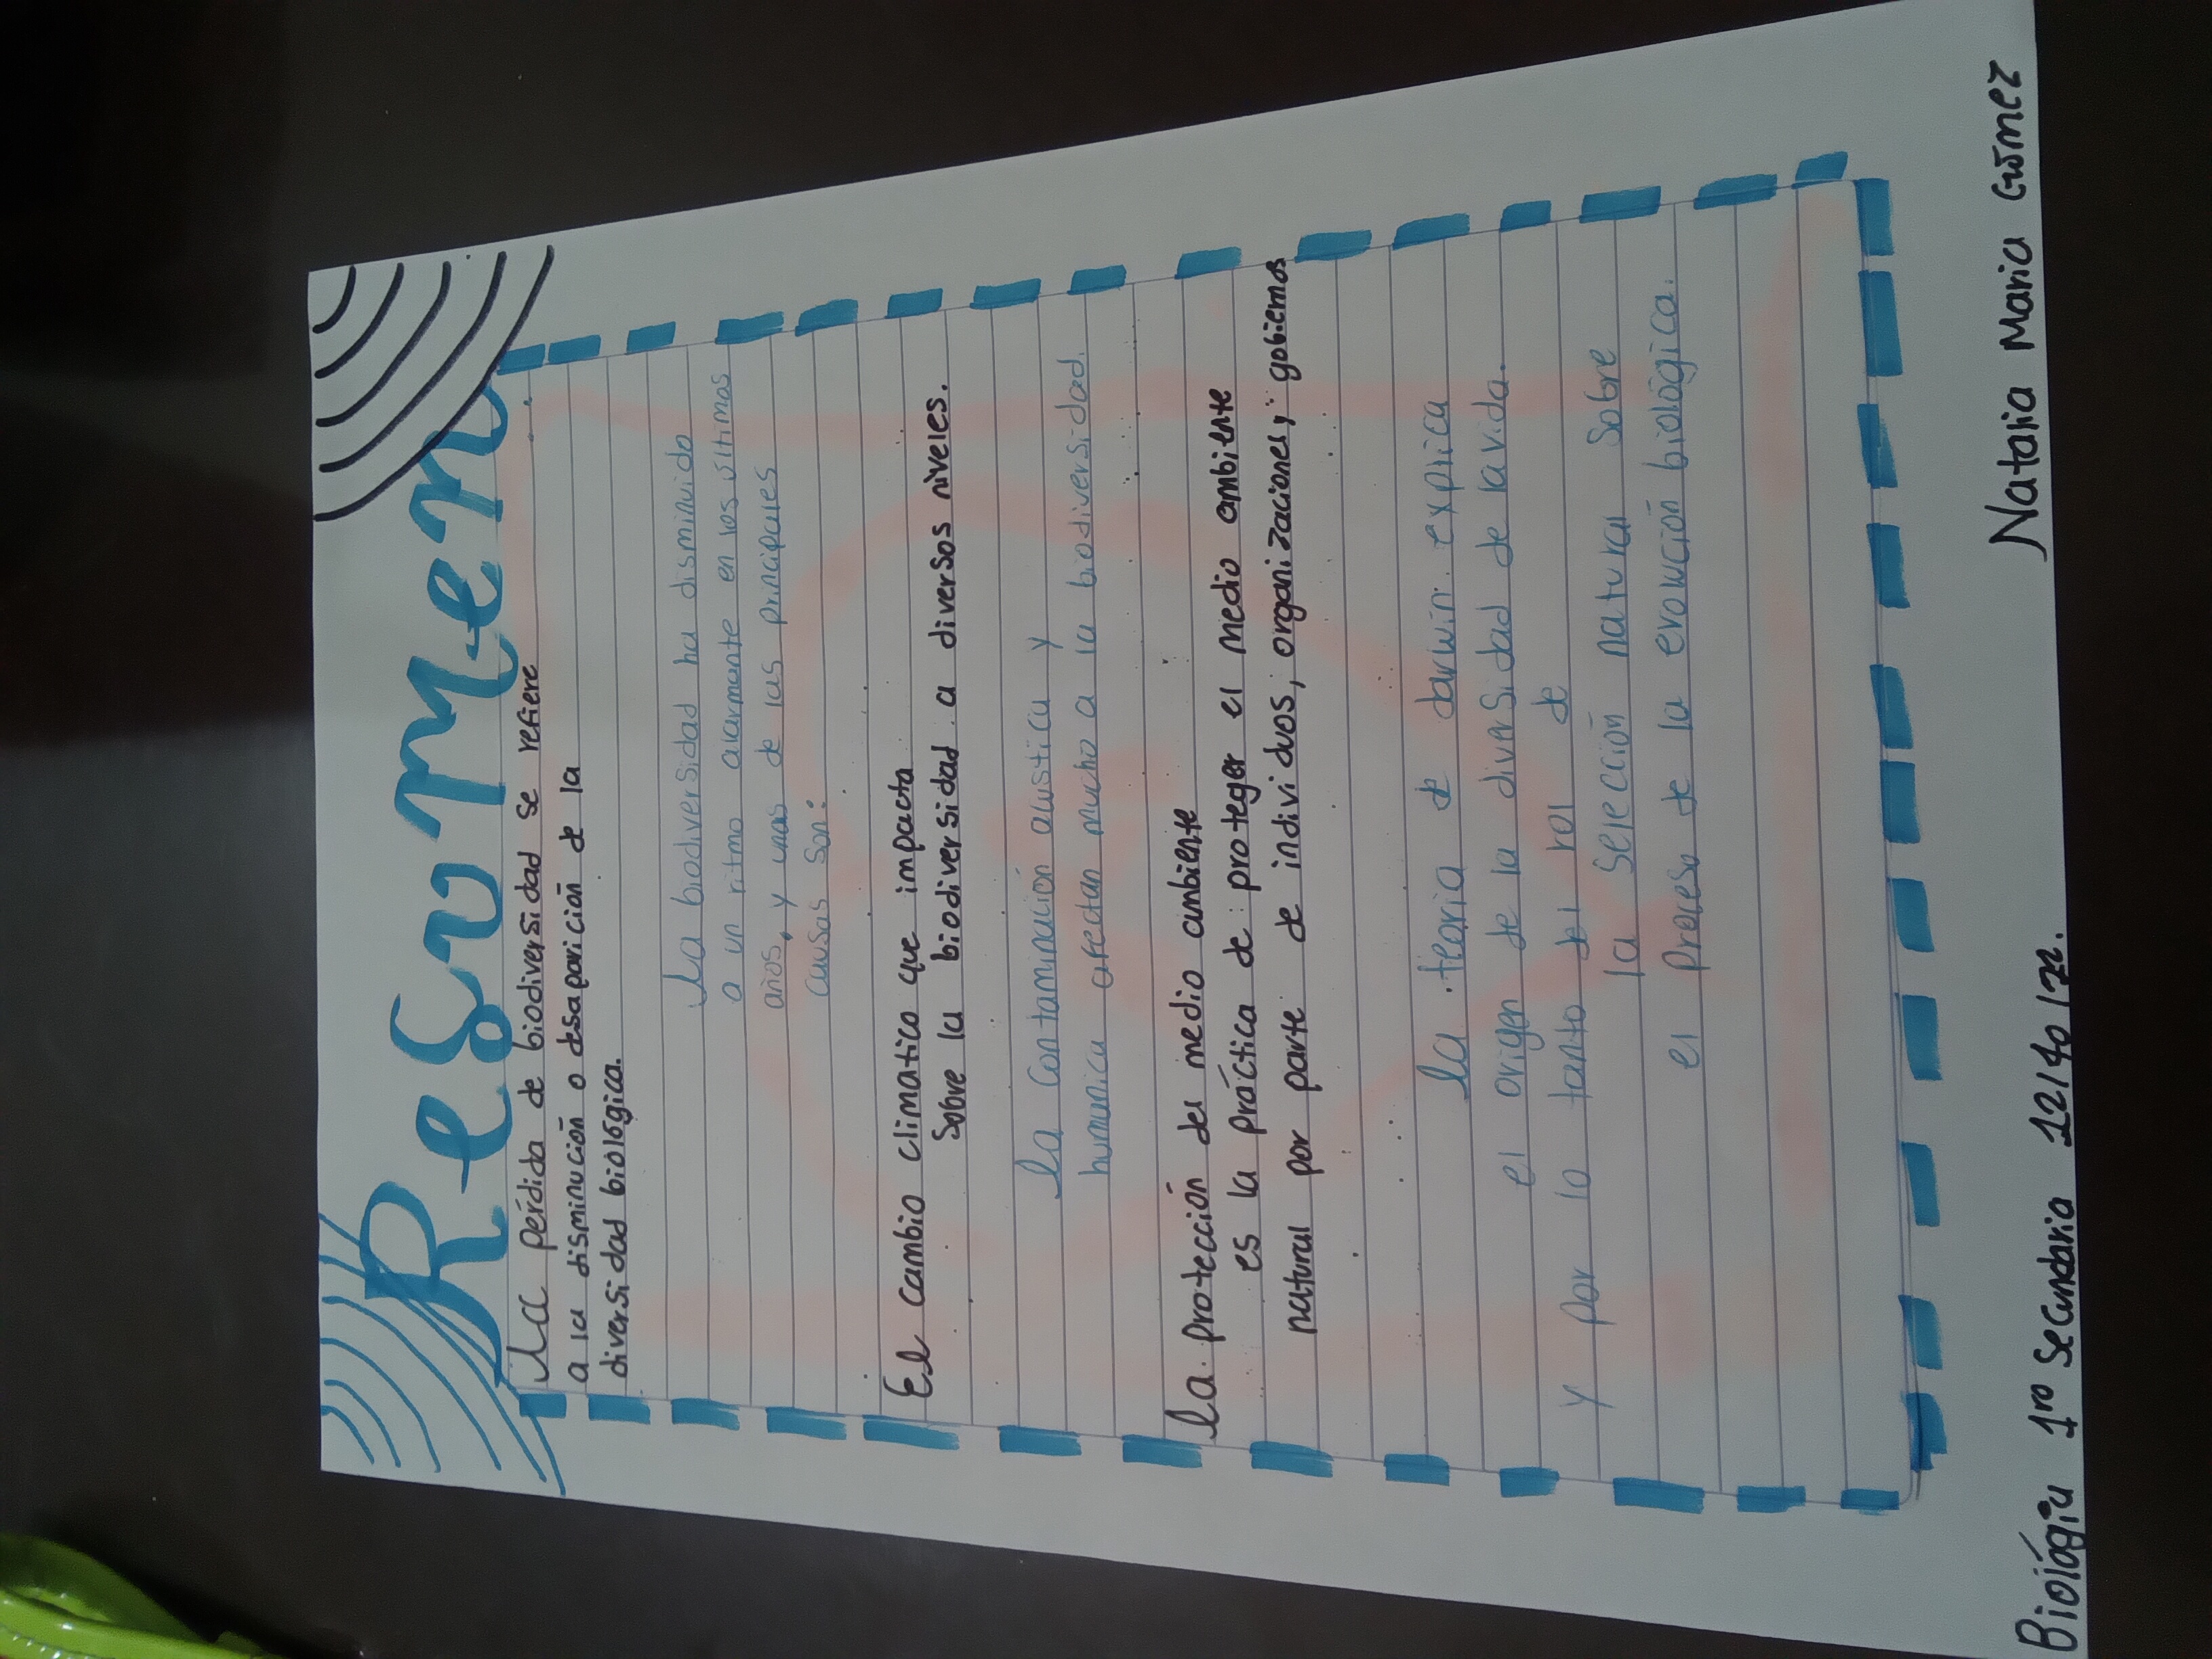 Resumen
La pérdida de biodiversidad se refiere
a la disminución o desaparición de la
diversidad biológica.
La biodiversidad ha disminuido
a un ritmo alarmante en los últimos
años, y unas de las principales
causas son:
El cambio climatico que impacta
Sobre la biodiversidad a diversos niveles.
La contaminación acustica y
humanica afectan mucho a la biodiversidad.
La protección del medio ambiente
es la práctica de proteger el medio ambiente
natural por parte de individuos, organizaciones, gobiernos
La teoria de darwin explica
el origen de la diversidad de la vida.
y por lo tanto del rol de
la selección natural sobre
el proceso de la evolución biológica.
Biología 1ro Secundaria 12/40/72.
Natalia Maria Gómez